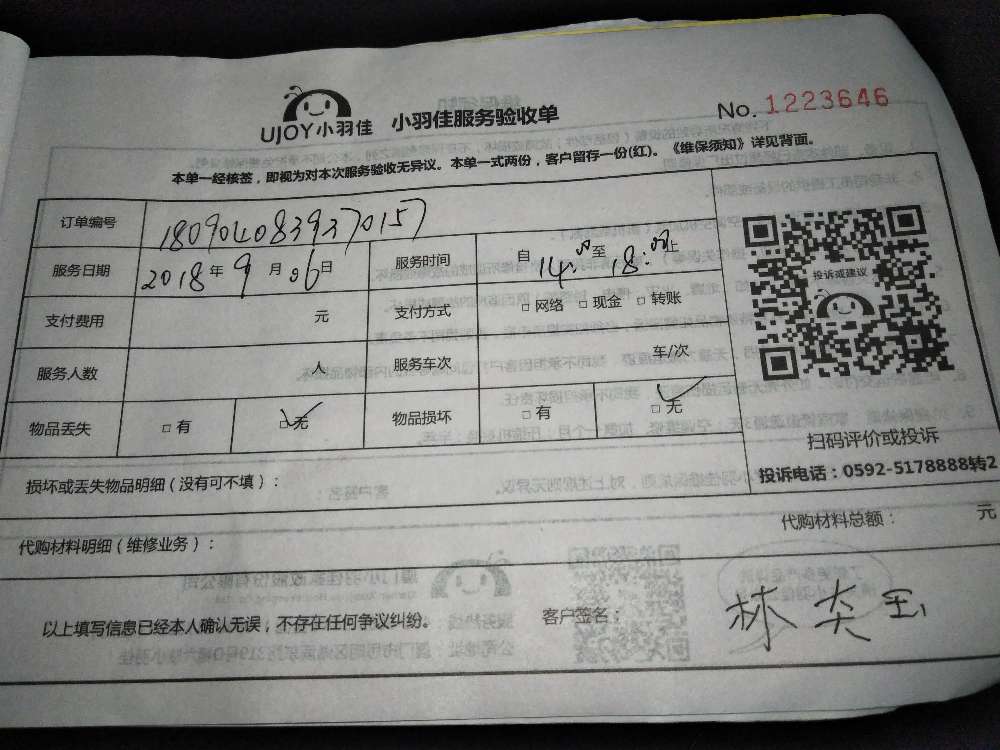 UJOY小羽佳 小羽佳服务验收单 No. 1223646
本单一经核签，即视为对本次服务验收无异议。本单一式两份，客户留存一份(红)。《维保须知》详见背面。
订单编号 1809040839270157
服务日期 2018年9月06日 服务时间 自14:00至18:00止
支付费用 元 支付方式 □网络 □现金 □转账
服务人数 人 服务车次 车/次
物品丢失 □有 □无 物品损坏 □有 □无
投诉或建议
扫码评价或投诉
投诉电话：0592-5178888转2
损坏或丢失物品明细（没有可不填）：
代购材料明细（维修业务）： 代购材料总额： 元
以上填写信息已经本人确认无误，不存在任何争议纠纷。 客户签名：林